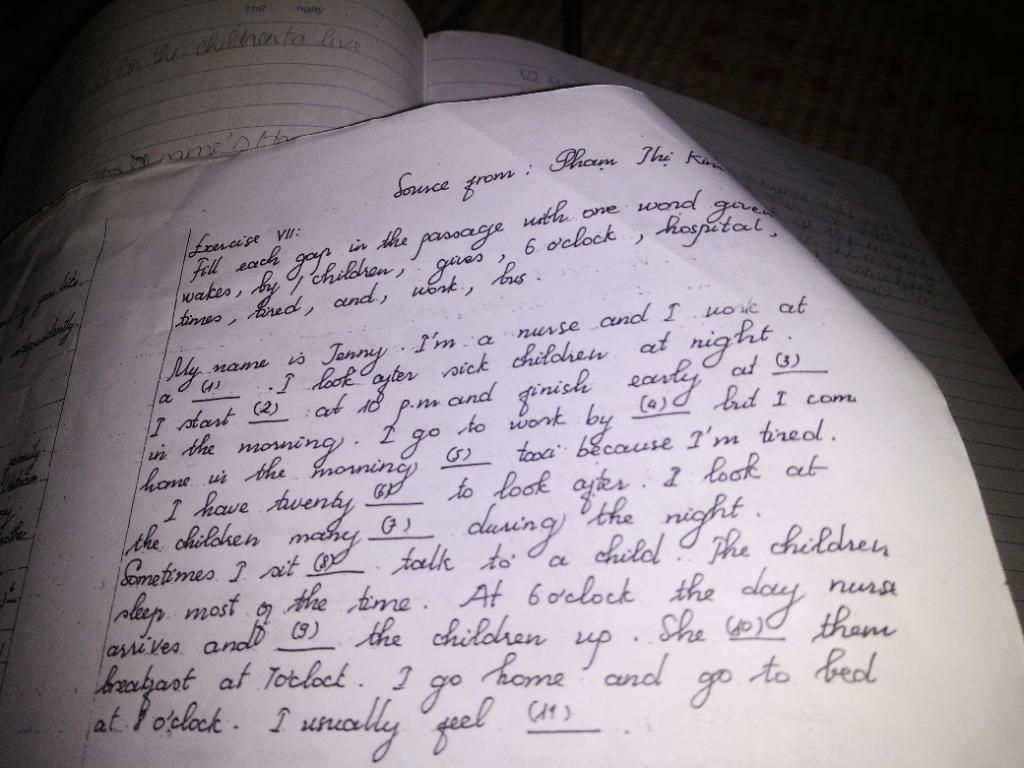 Thứ ngày
for the children to live
Source from : Phạm Thị Kim
Exercise VII:
Fill each gap in the passage with one word given
wakes, by, children, gives, 6 o'clock, hospital,
times, tired, and, work, bus.
My name is Jenny. I'm a nurse and I work at
a (1) . I look after sick children at night.
I start (2) at 10 p.m and finish early at (3)
in the morning. I go to work by (4) but I com
home in the morning (5) taxi because I'm tired.
I have twenty (6) to look after. I look at
the children many (7) during the night.
Sometimes I sit (8) talk to a child. The children
sleep most of the time. At 6 o'clock the day nurse
arrives and (9) the children up. She (10) them
breakfast at 7o'clock. I go home and go to bed
at 8 o'clock. I usually feel (11) .
you like.
independently.
family.